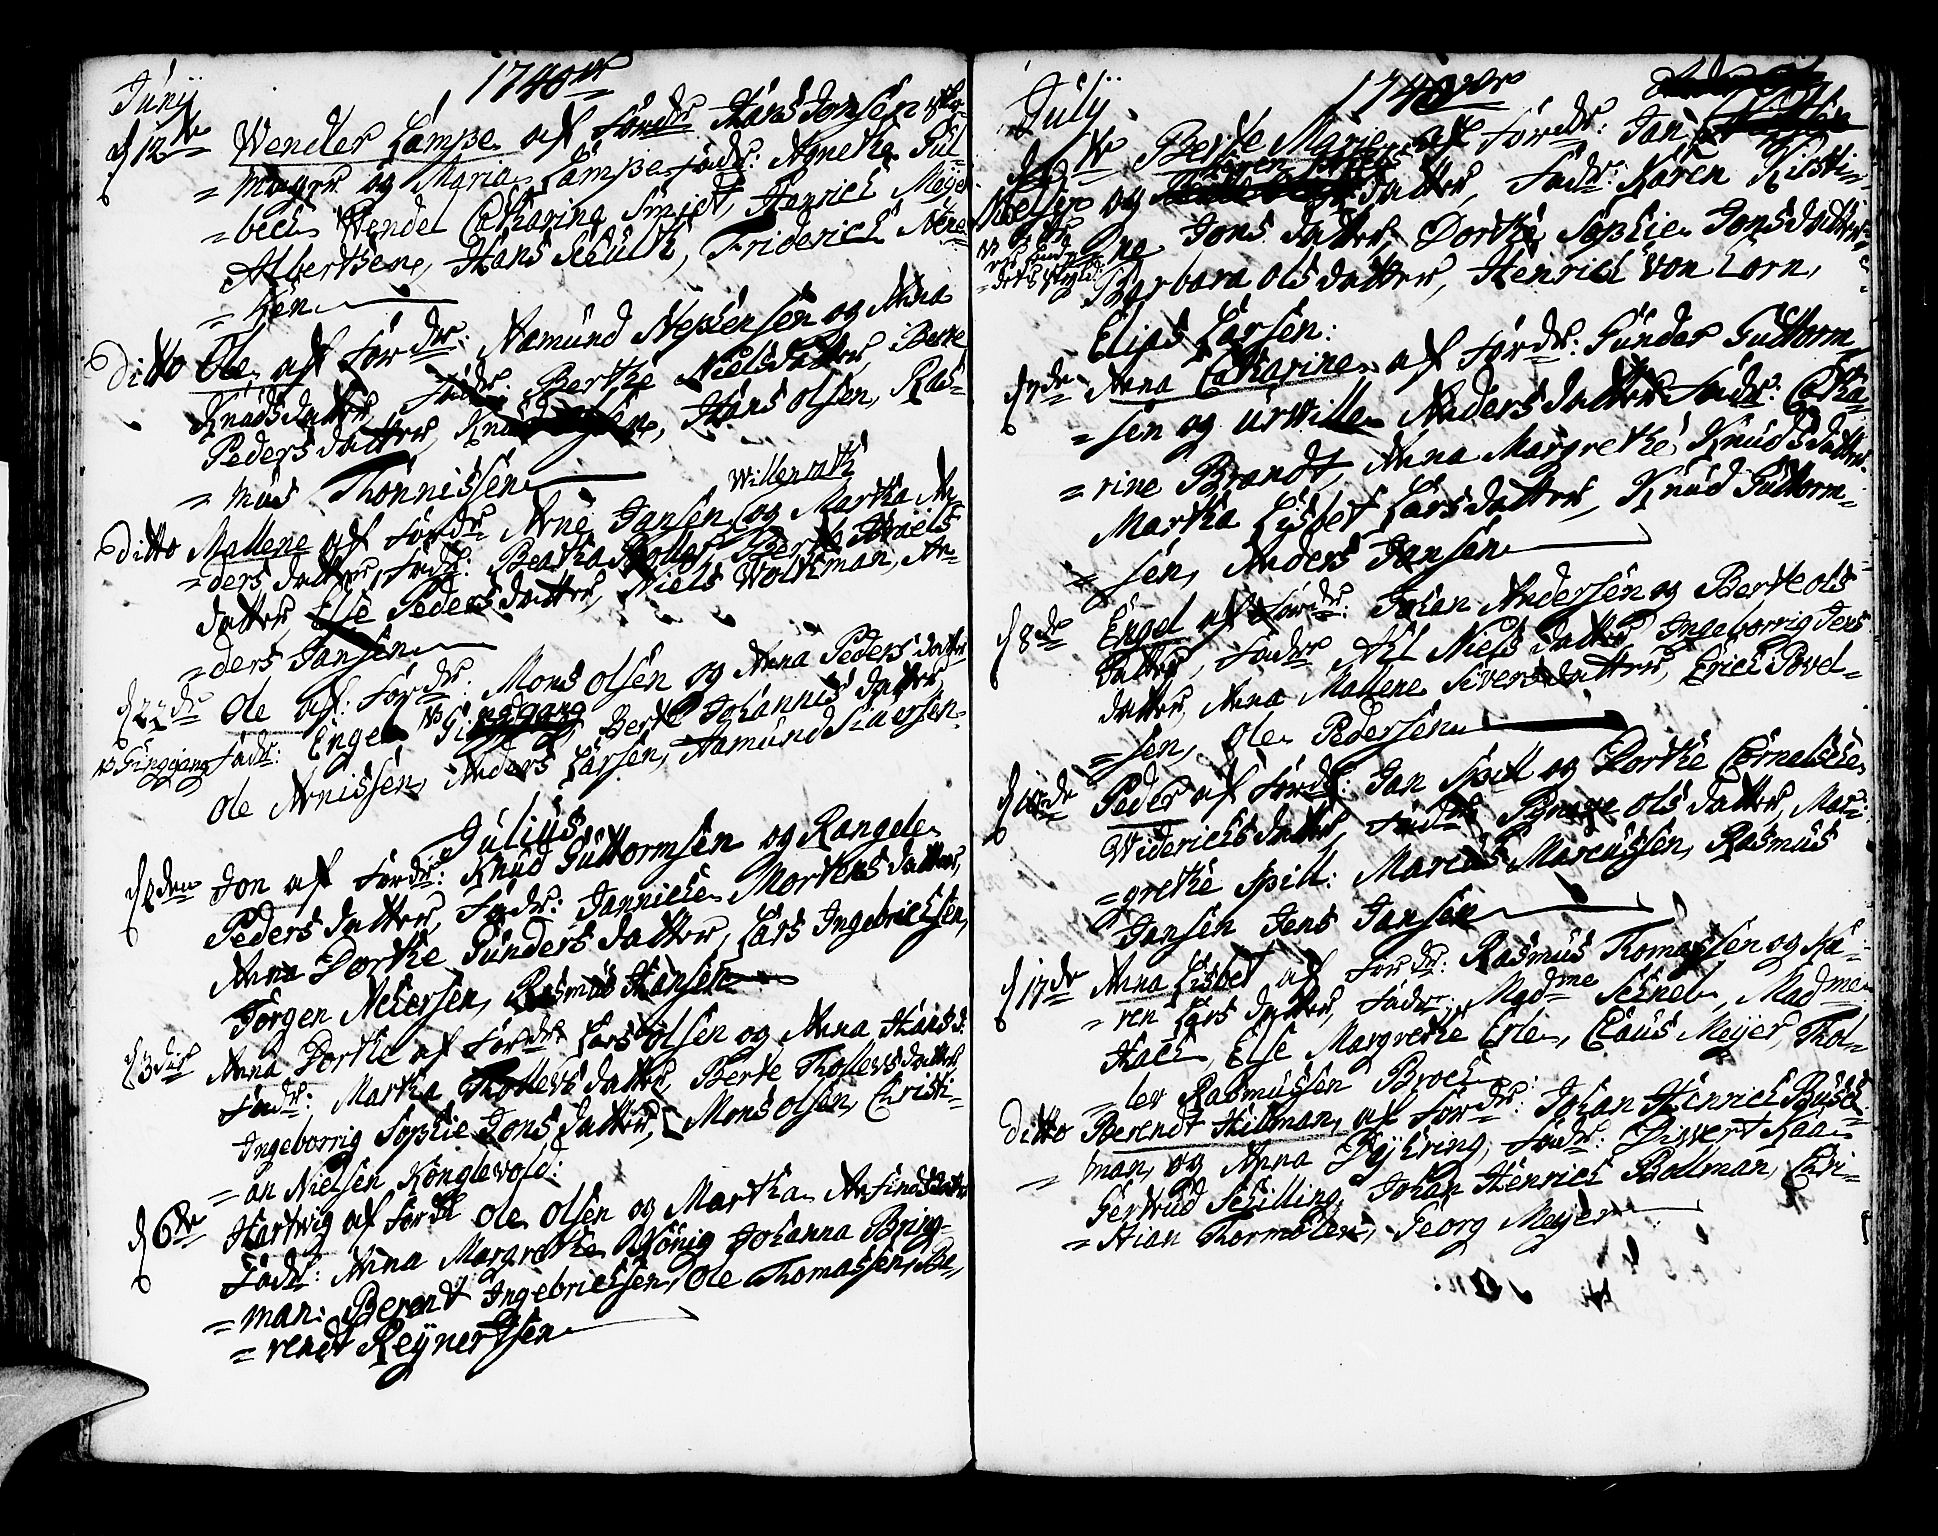 Junÿ 1740
d 12te Wendler Lampe af Fordr: Hans Jonsen
= mager og Maria Lampe Fadr: Agnethe Sül-
= beck Wendel Catharina Smidt, Henrich Meÿer
Albertsen, Hans Schulth, Friderich Nene-
= ken
Ditto Ole af Fordr: Aamund Stephensen og Anna
Knudsdatter, Fadr: Berthe Nielsdatter, Berte
Pedersdatter, Knud Hans Olsen, Ras-
= mus Thonnissen
Willemoth
Ditto Mallene af Fordr: Arne Jansen og Martha An-
= ders datter, Fadr: Beatha Berte Niels
datter, Else Peders datter, Niels Wolkman, An-
= ders Jansen
d 22de Ole af Fordr: Mons Olsen og Anna Peders datter
NB Singgang Fadr: Engel Berte Johannis datter,
Ole Arnissen, Anders Larsen, Aamund Siversen.
Julius
d 2den Jon af Fordr: Knud Guttormsen og Rangele
Peders datter, Fadr: Jannicke Mortens datter,
Anna Dorthe Gunders datter, Lars Ingebrichsen,
Jörgen Rasmus Hansen
d 3die Anna Dorthe af Fordr: Lars Olsen og Anna Hansd:
Fadr: Martha Thollevs datter, Berte Thollevs datter,
Ingeborrig Sophie Jons datter, Mons Olsen, Christi-
= an Nielsen Konglevold:
d 6te Hartwig af Fordr: Ole Olsen og Martha Arfinds datter
Fadr: Anna Margrethe König Johanna Bring-
= man: Berent Ingebrichsen, Ole Thomassen, Be-
= rendt Reÿnertsen
Julÿ 1740
Berte Marie af Fordr: Jan
Nielsen og Karen datter, Fadr: Karen Kirsti-
= ne Jons datter, Dorthe Sophie Jonsdatter
Barbara Ols datter, Henrich von Lorn,
Elias Larsen:
Anna Catharine af Fordr: Gunder Guttorm
= sen og Urwille Anders datter Fadr: Catha-
= rine Brandt, Anna Margrethe Knuds datter
Martha Lisbet Lars datter, Knud Guttorm-
= sen, Anders Jansen
d 8de Engel af Fordr: Johan Andersen og Berte Ols
datter, Fadr: Niels datter Ingeborrig Jens
datter, Anna Mallene Sivers datter, Erich Povel-
= sen, Ole Pedersen
d 10de Peder af Fordr: Jan Spill og Dorthe Cornelche
Widerichs datter, Fadr: Ols datter, Mar:
= grethe Spill: Marcus Marcussen, Rasmus
Jansen Jens Jansen
d 17de Anna Lisbet af Fordr: Rasmus Thomassen og Ka-
= ren Lars datter, Fadr: Madme Schnel, Madme
Hack, Else Margrethe Erle, Claus Meÿer, Thol-
= lev Rasmussen Broch
Ditto Berendt Hilman, af Fordr: Johan Henrich Büsch-
= man, og Anna Fadr:
Gertrud Schilling, Johan Henrich Bollman, Chri-
= stian Thormölen, Georg Meÿer